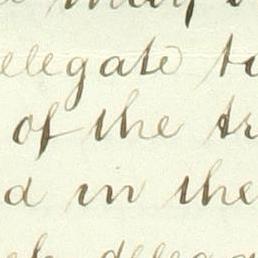 elegate to
of the tr
d in the